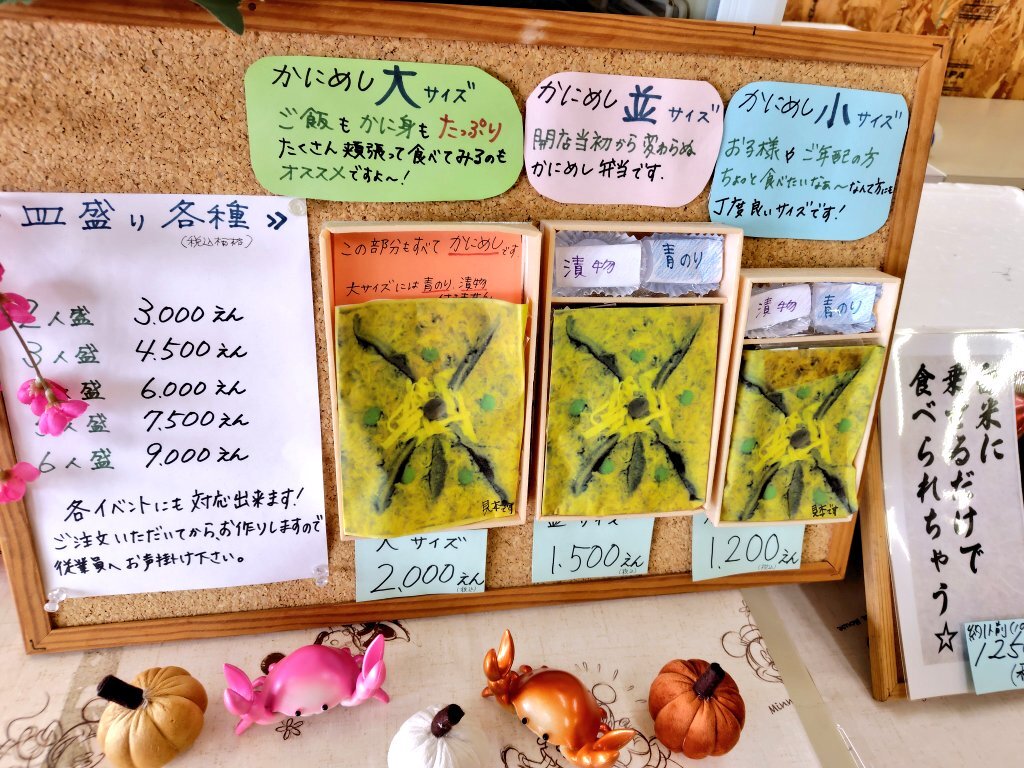 かにめし大サイズ
ご飯もかに身もたっぷり
たくさん頬張って食べてみるのも
オススメですよ〜!
かにめし並サイズ
開店当初から変わらぬ
かにめし弁当です.
かにめし小サイズ
お子様やご年配の方
ちょっと食べたいなぁ〜なんて方にも
丁度良いサイズです!
皿盛り各種》
(税込価格)
2人盛 3.000えん
3人盛 4.500えん
人盛 6.000えん
5人盛 7.500えん
6人盛 9.000えん
各イベントにも対応出来ます!
ご注文いただいてから、お作りしますので
従業員へお声掛け下さい。
この部分もすべてかにめしです
大サイズには青のり、漬物
見本です
大サイズ
2.000えん
(税込)
漬物
青のり
並サイズ
1.500えん
(税込)
漬物
青のり
見本です
1.200えん
(税込)
米に
乗せるだけで
食べられちゃう☆